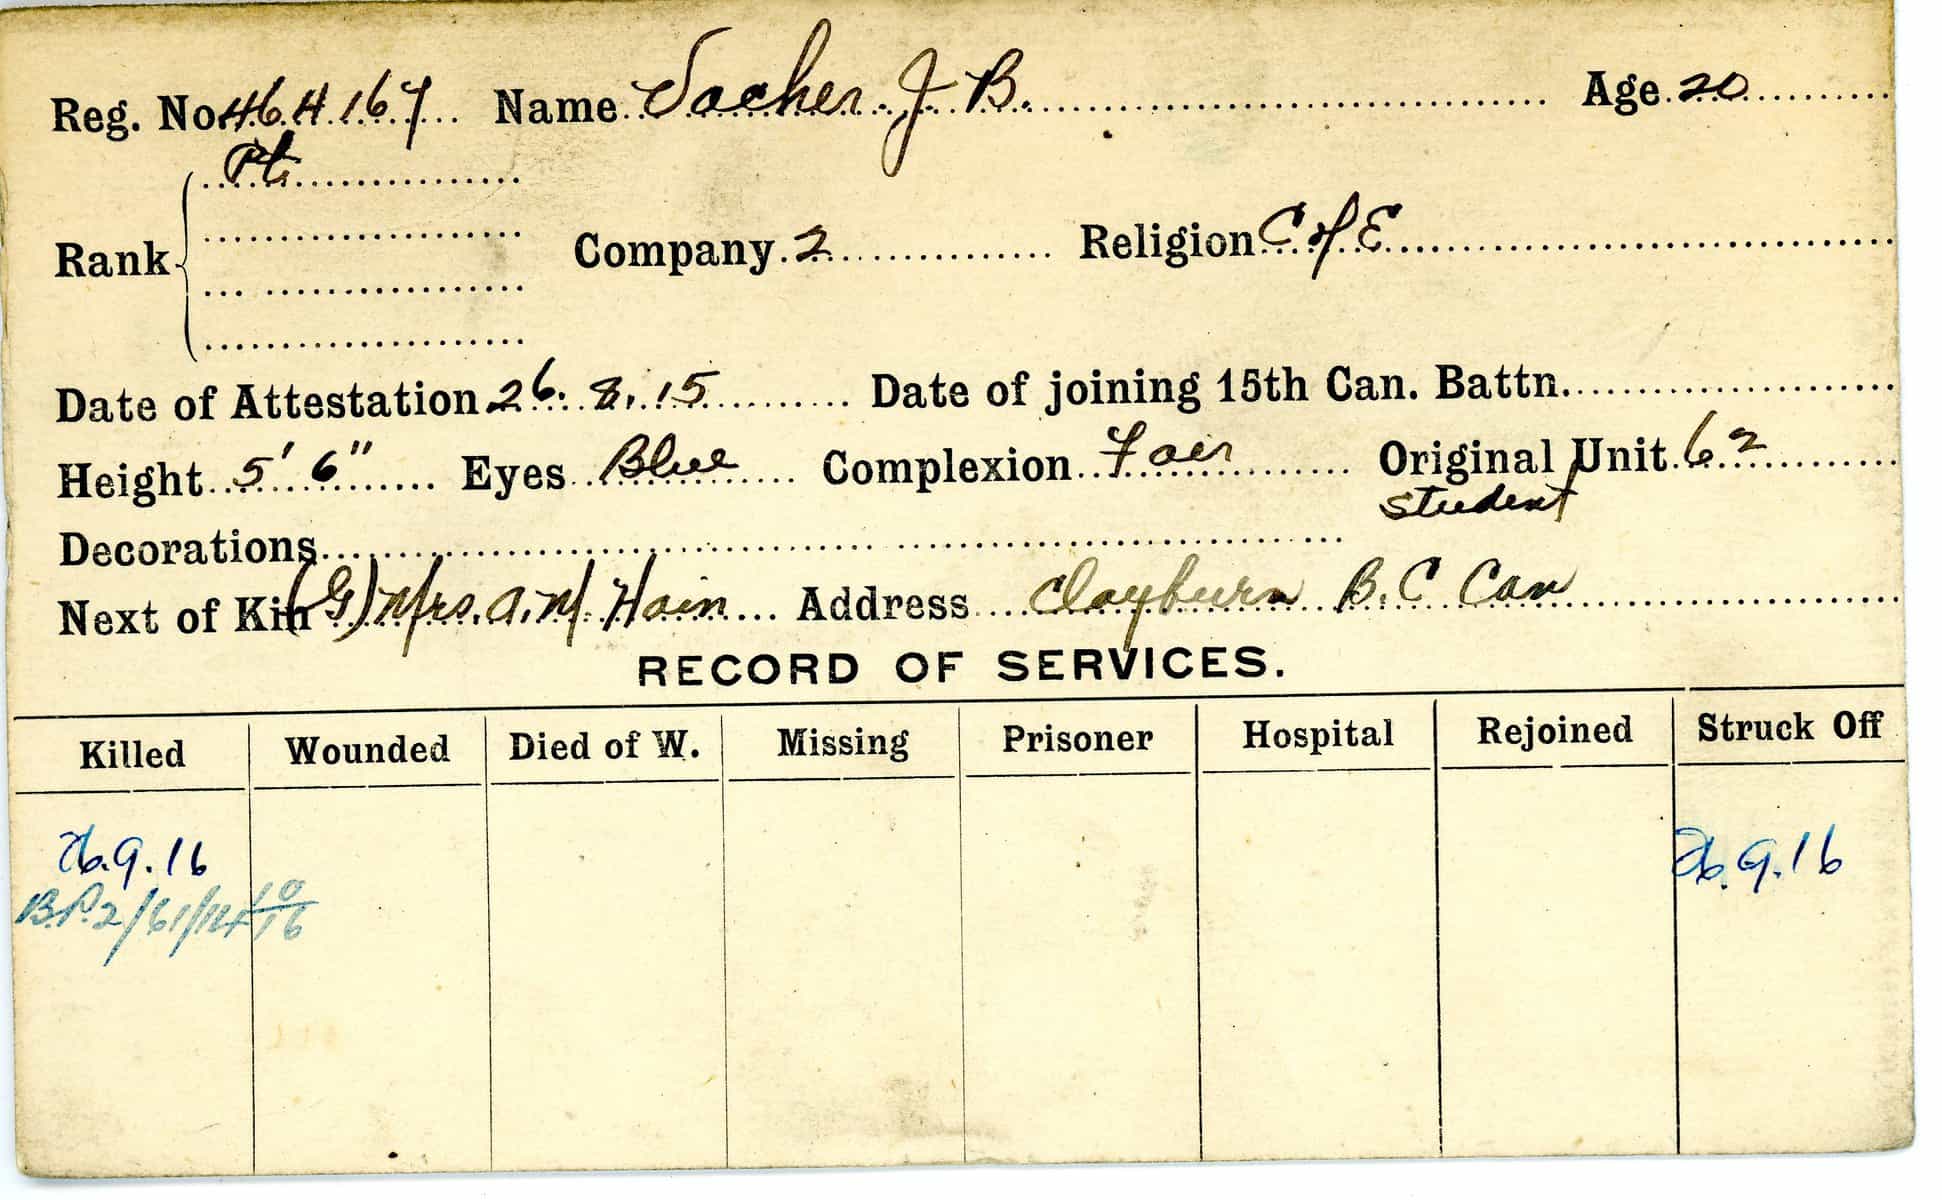 Reg. No. 464167 Name Vacher J. B. Age 20
Pte
Rank Company 2 Religion C of E
Date of Attestation 26. 8. 15 Date of joining 15th Can. Battn.
Height 5' 6" Eyes Blue Complexion Fair Original Unit 62
Student
Decorations
Next of Kin (G) Mrs. A. M. Hain Address Clayburn B. C Can
RECORD OF SERVICES.
Killed Wounded Died of W. Missing Prisoner Hospital Rejoined Struck Off
26.9.16 26.9.16
B.P.2/61/